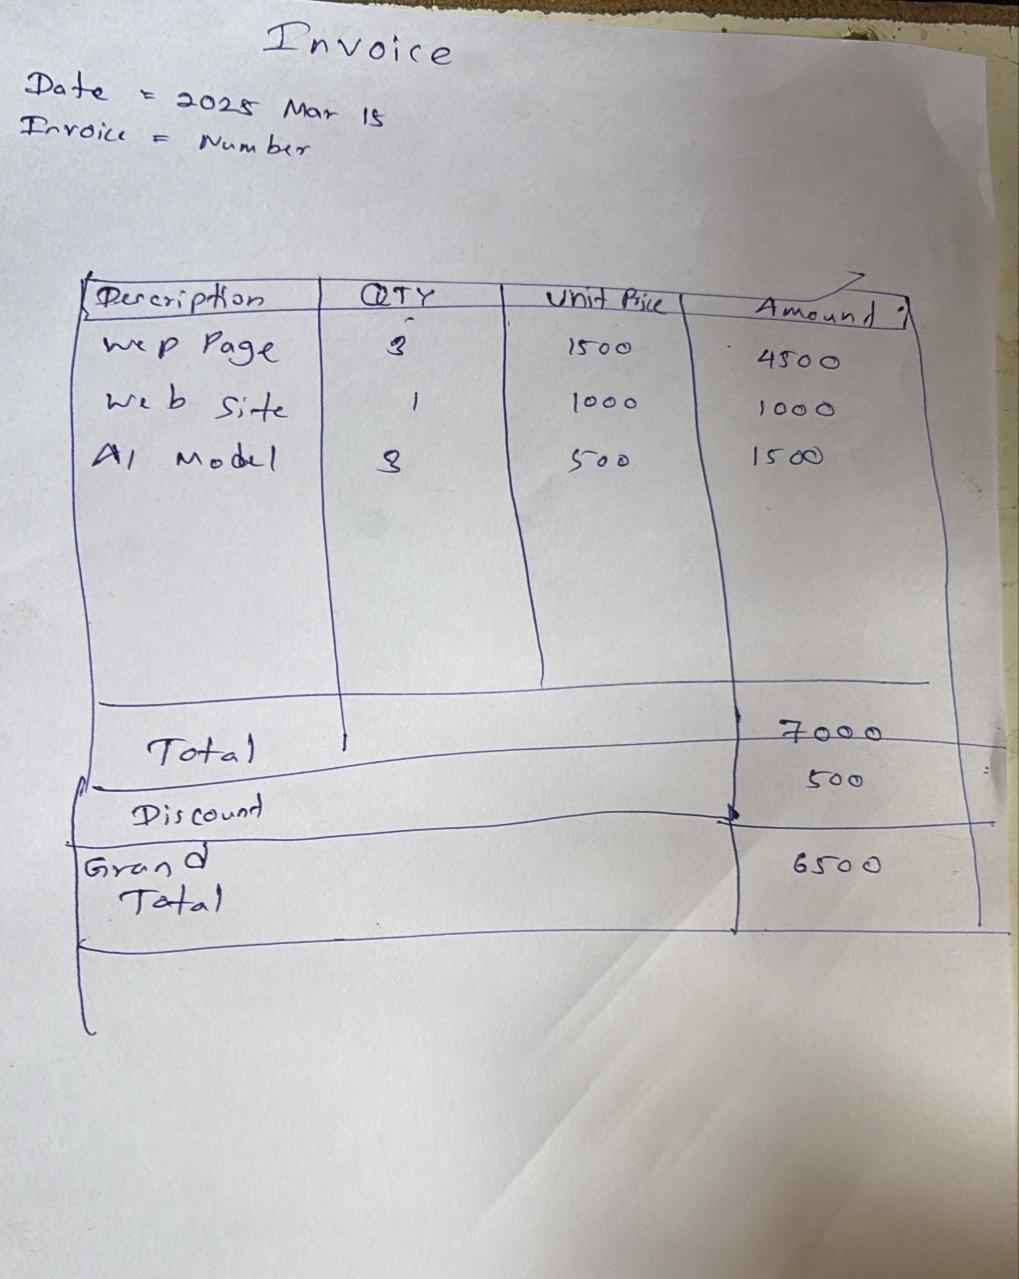 Invoice
Date = 2025 Mar 15
Invoice = Number
Description QTY Unit Price Amound
Wep Page 3 1500 4500
Web Site 1 1000 1000
AI Model 3 500 1500
Total 7000
Discount 500
Grand Total 6500